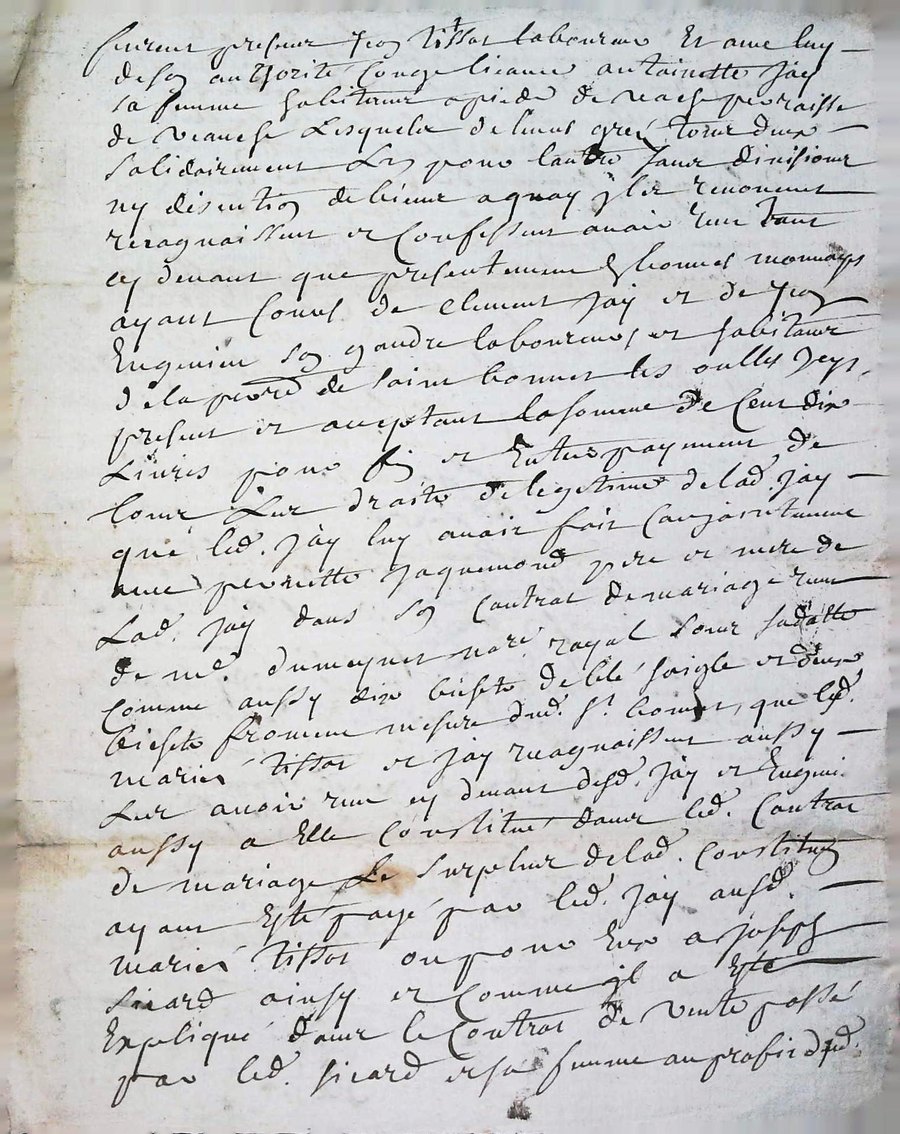 furent presens Jean Tissot laboureur Et avec luy
de son authorité Conge licance antoinette Jay
sa femme habitans a pied de vache perroisse
de veauche Lesquels de leurs gréz tous deux
solidairement L'un pour lautre sans division
ny discution de biens aquoy ils renoncent
recognaissent et Confessent avoir receu tant
cy devant que presentement En bonnes monnoyes
ayant Cours de Clement Jay et de Jean
Eugenieu son gendre laboureurs et habitans
de la perr.se de saint bonnet les oulles Jcy
present et acceptant la somme de Cent dix
Livres pour fin et Entier payement de
tous Les droits de legetime de lad. Jay
que led. Jay luy avoir fait Conjointement
avec pernette Jaquemond pere et mere de
Lad. Jay dans son Contrat de mariage receu
de me. dumaynet nore. royal sous sadatte
Comme aussy dix bichets de blé soigle et deux
bichets froment mesure dud. St. bonnet, que lesd.
mariés Tissot et Jay recognaissent aussy
Les avoir receu cy devant desd. Jay et Eugeni.
aussy a Elle Constitué dans led. Contrat
de mariage Le surplus de lad. Constitution
ayant Esté payé par led. Jay ausd.
mariés Tissot ou pour Eux a Joseph
Sicard ainsy et Comme il a Esté
Expliqué dans le Contrat de vente passé
par led. Sicard et sa femme au profit dud.